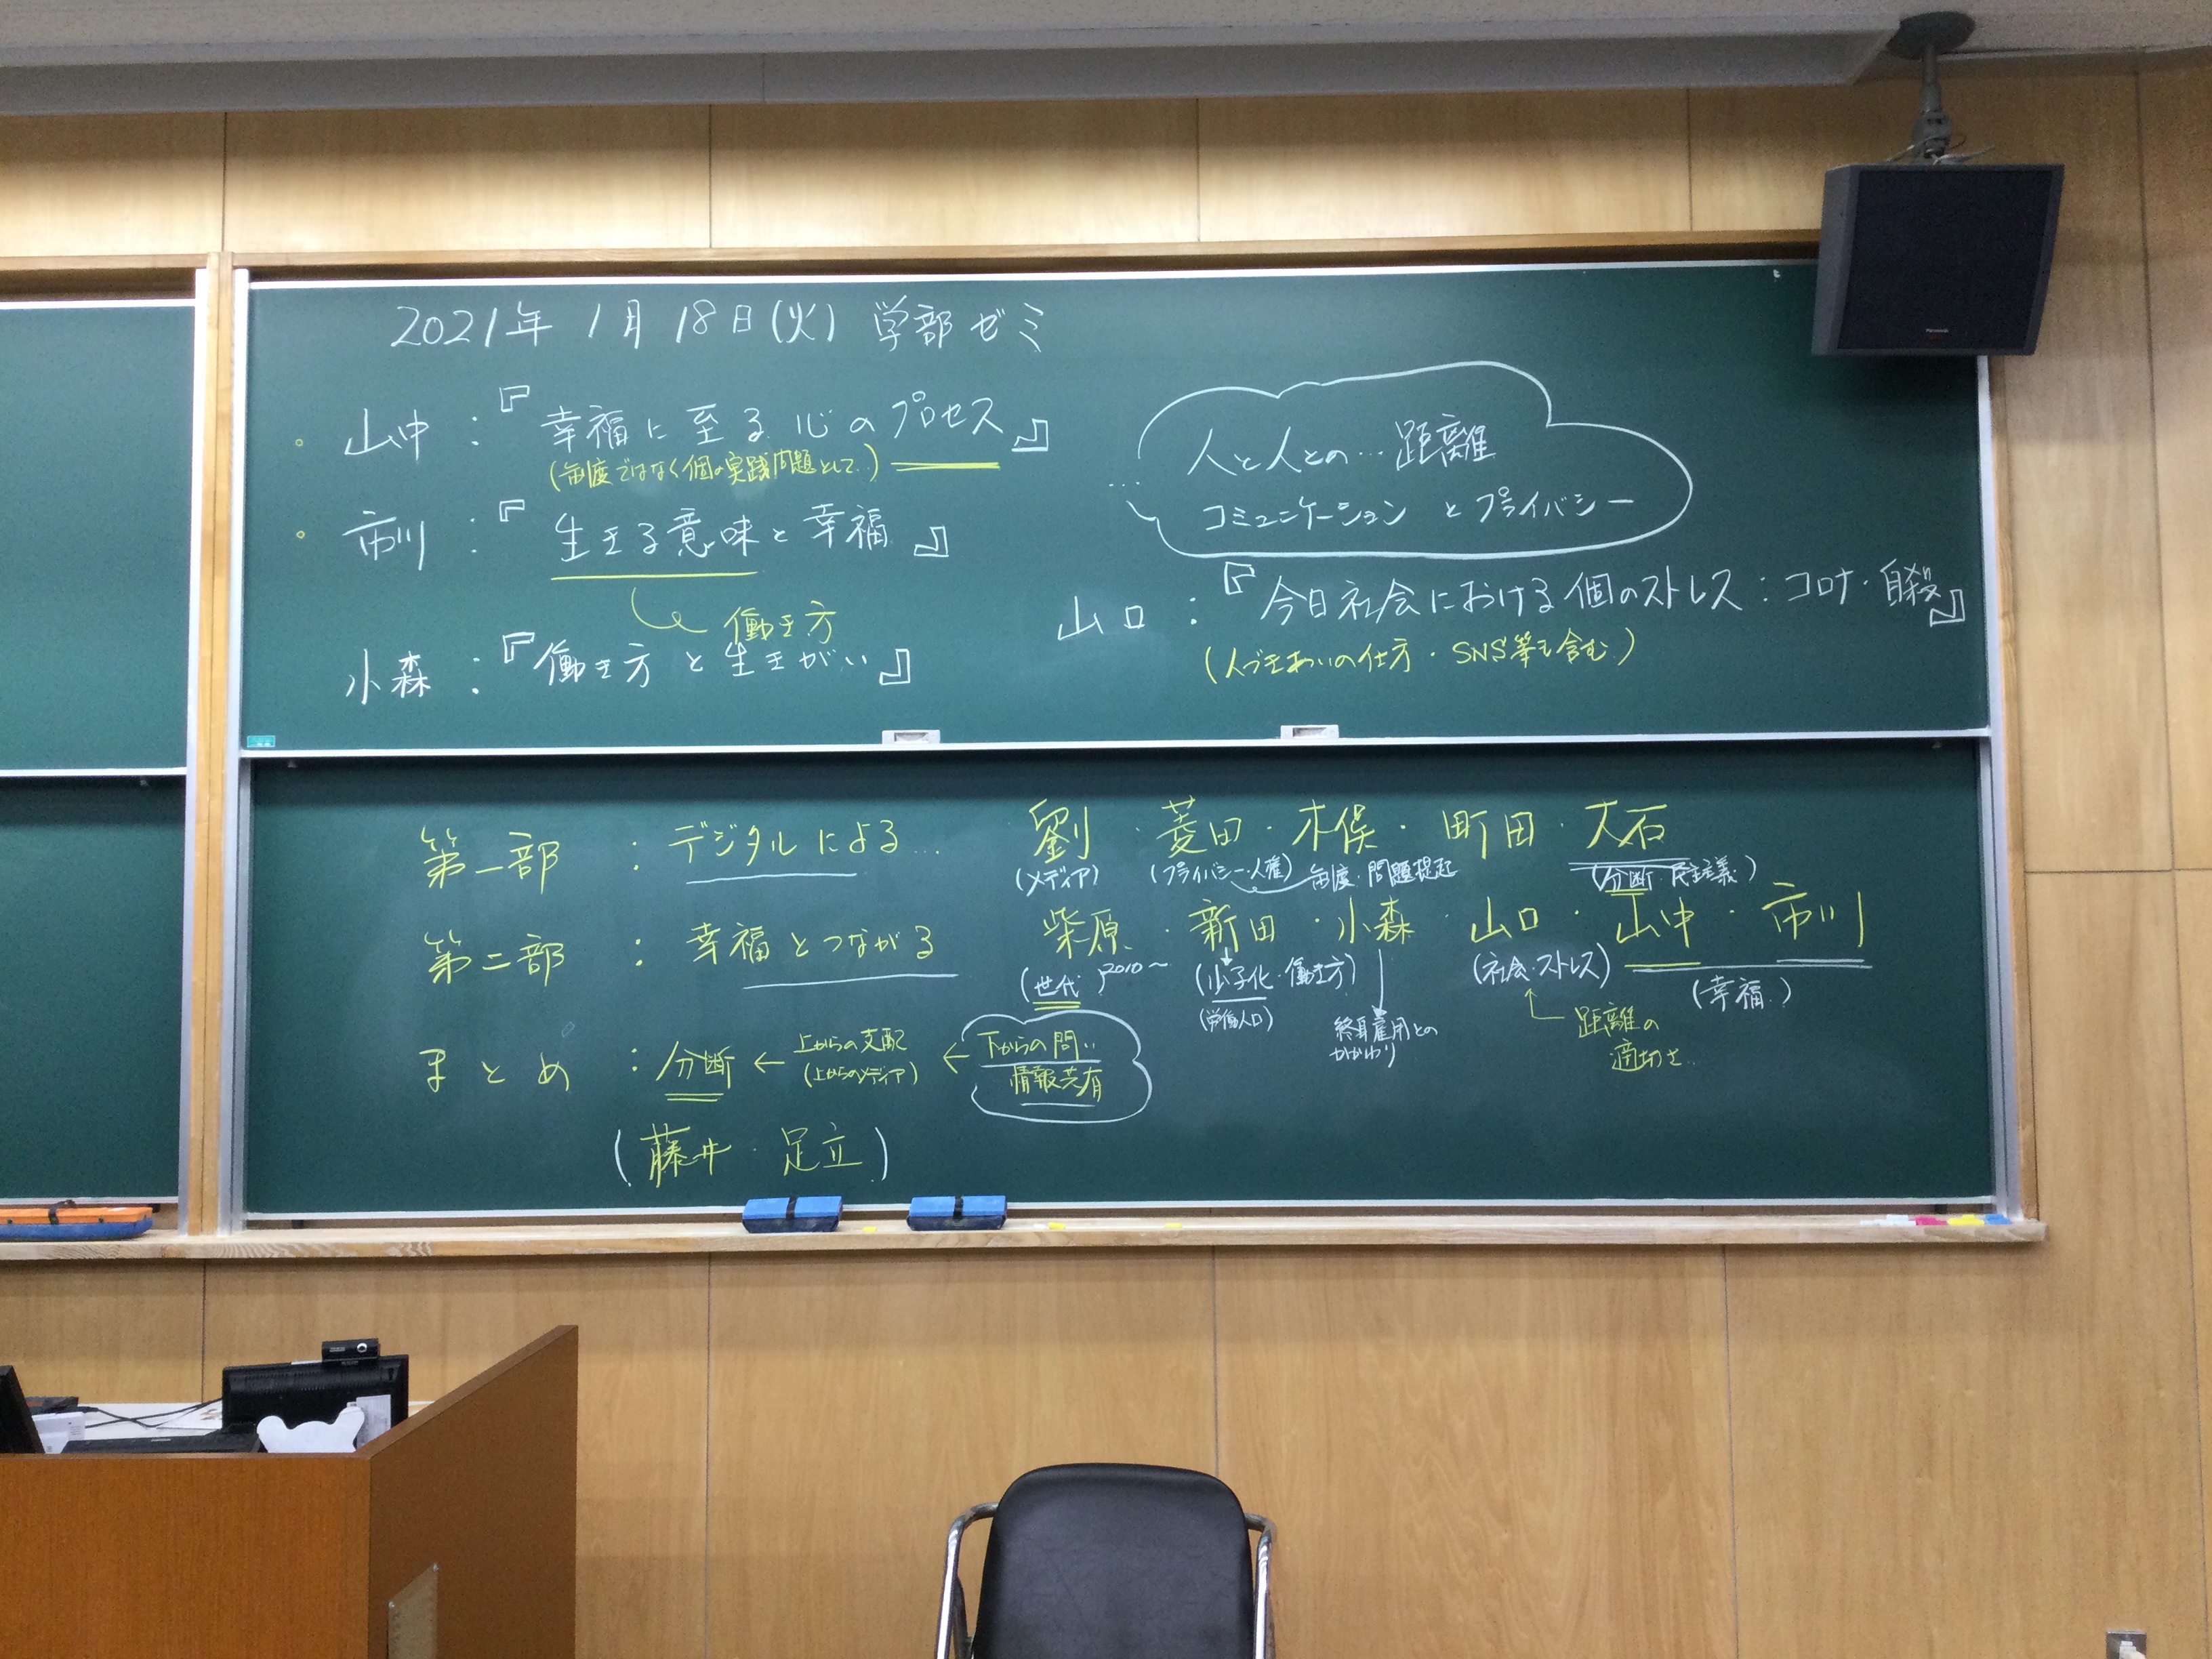 2021年 1月 18日(火) 学部ゼミ
山中:『幸福に至る心のプロセス』
(制度ではなく個の実践問題として…)
市川:『生きる意味と幸福』
働き方
小森:『働き方と生きがい』
人と人との…距離
コミュニケーションとプライバシー
山口:『今日社会における個のストレス:コロナ・自殺』
(人づきあいの仕方・SNS等も含む)
第一部:デジタルによる…
劉・菱田・木俣・町田・大石
(メディア) (プライバシー・人権) 制度・問題提起 (分断・民主主義)
第二部:幸福とつながる
柴原・新田・小森・山口・山中・市川
(世代) 2010〜 (少子化・働き方) (社会・ストレス) (幸福)
(労働人口)
終身雇用との
かかわり
距離の
適切さ…
まとめ:分断 ← 上からの支配 ← 下からの問い
(上からのメディア) 情報共有
(藤井・足立)
Panasonic